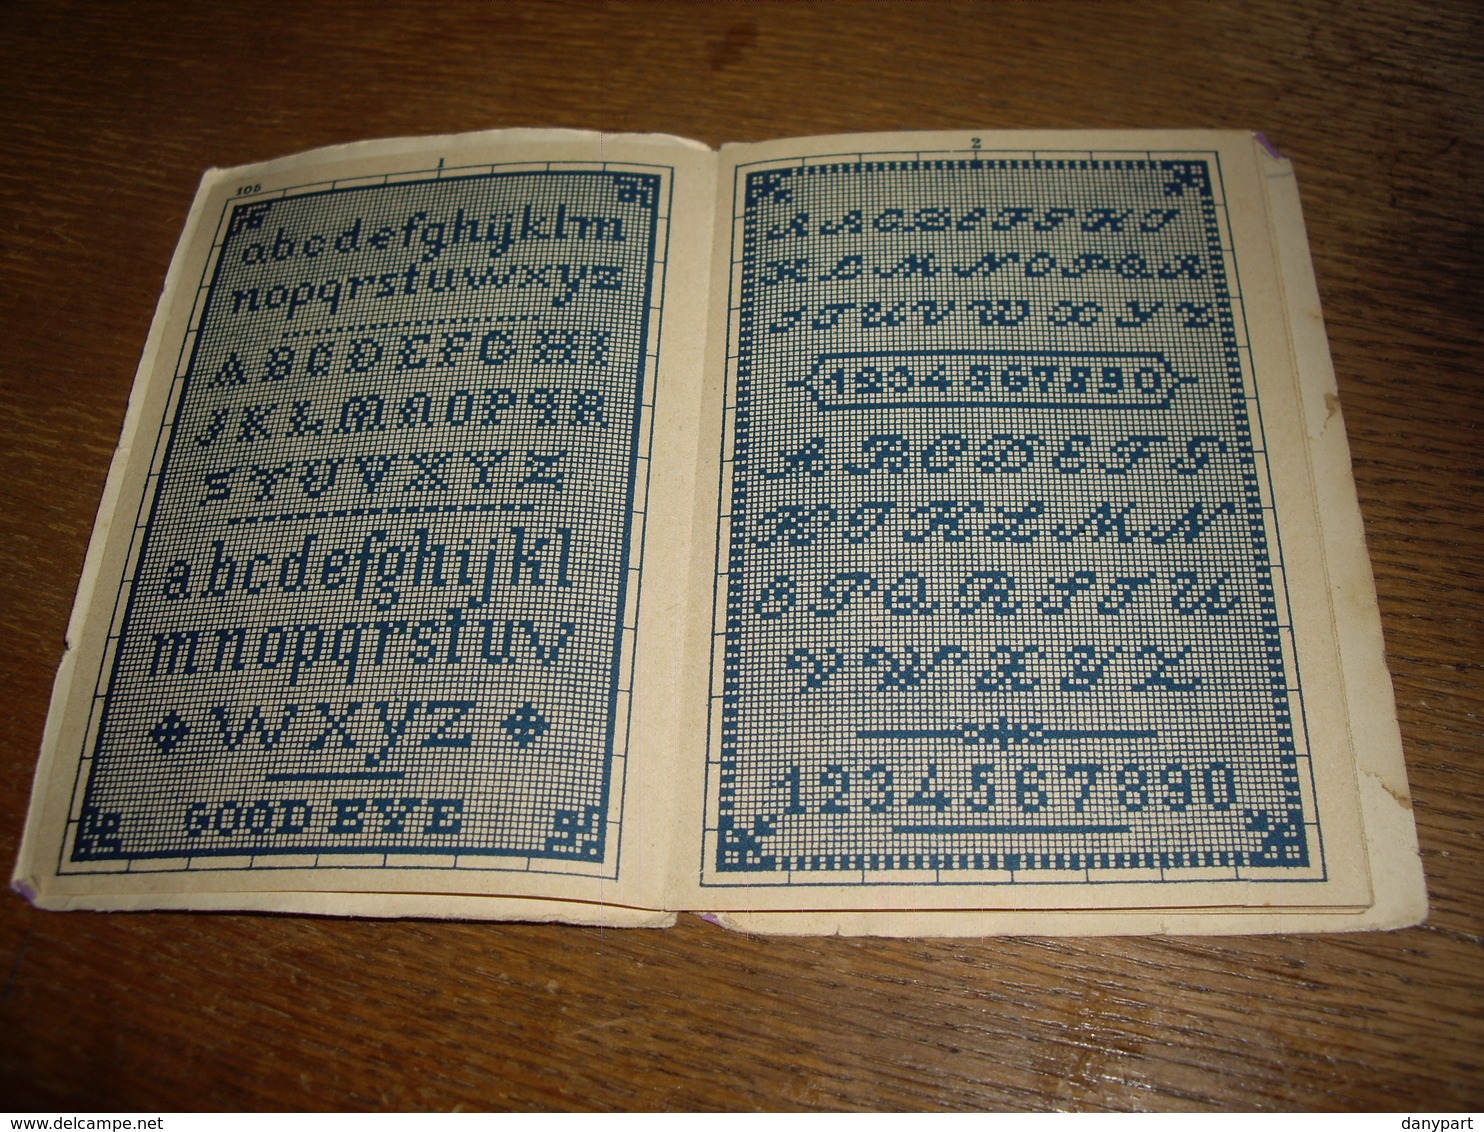 105
1
abcdefghijklm
nopqrstuvwxyz
ABCDEFGHI
JKLMNOPQR
STUVXYZ
abcdefghijkl
mnopqrstuv
wxyz
GOOD EVE
2
KLMNOPQR
STUVWXYZ
1234567890
ABCDEFG
HIKLMN
OPQRSTU
VWXYZ
1234567890
© www.delcampe.net
danypart